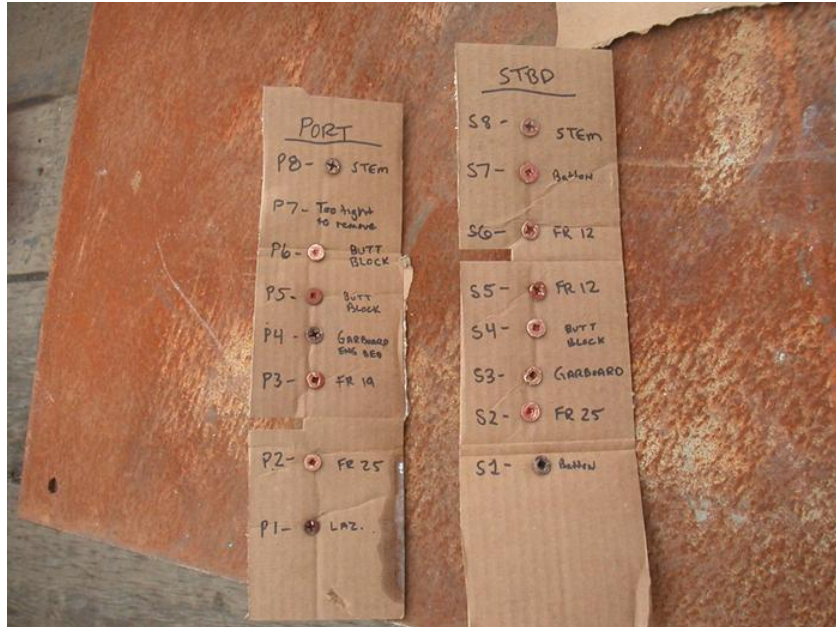 PORT
P8- STEM
P7- Too tight
to remove
P6- BUTT
BLOCK
P5- BUTT
BLOCK
P4- GARBOARD
ENG BED
P3- FR 19
P2- FR 25
P1- LAZ.
STBD
S8- STEM
S7- Batten
S6- FR 12
S5- FR 12
S4- BUTT
BLOCK
S3- GARBOARD
S2- FR 25
S1- Batten